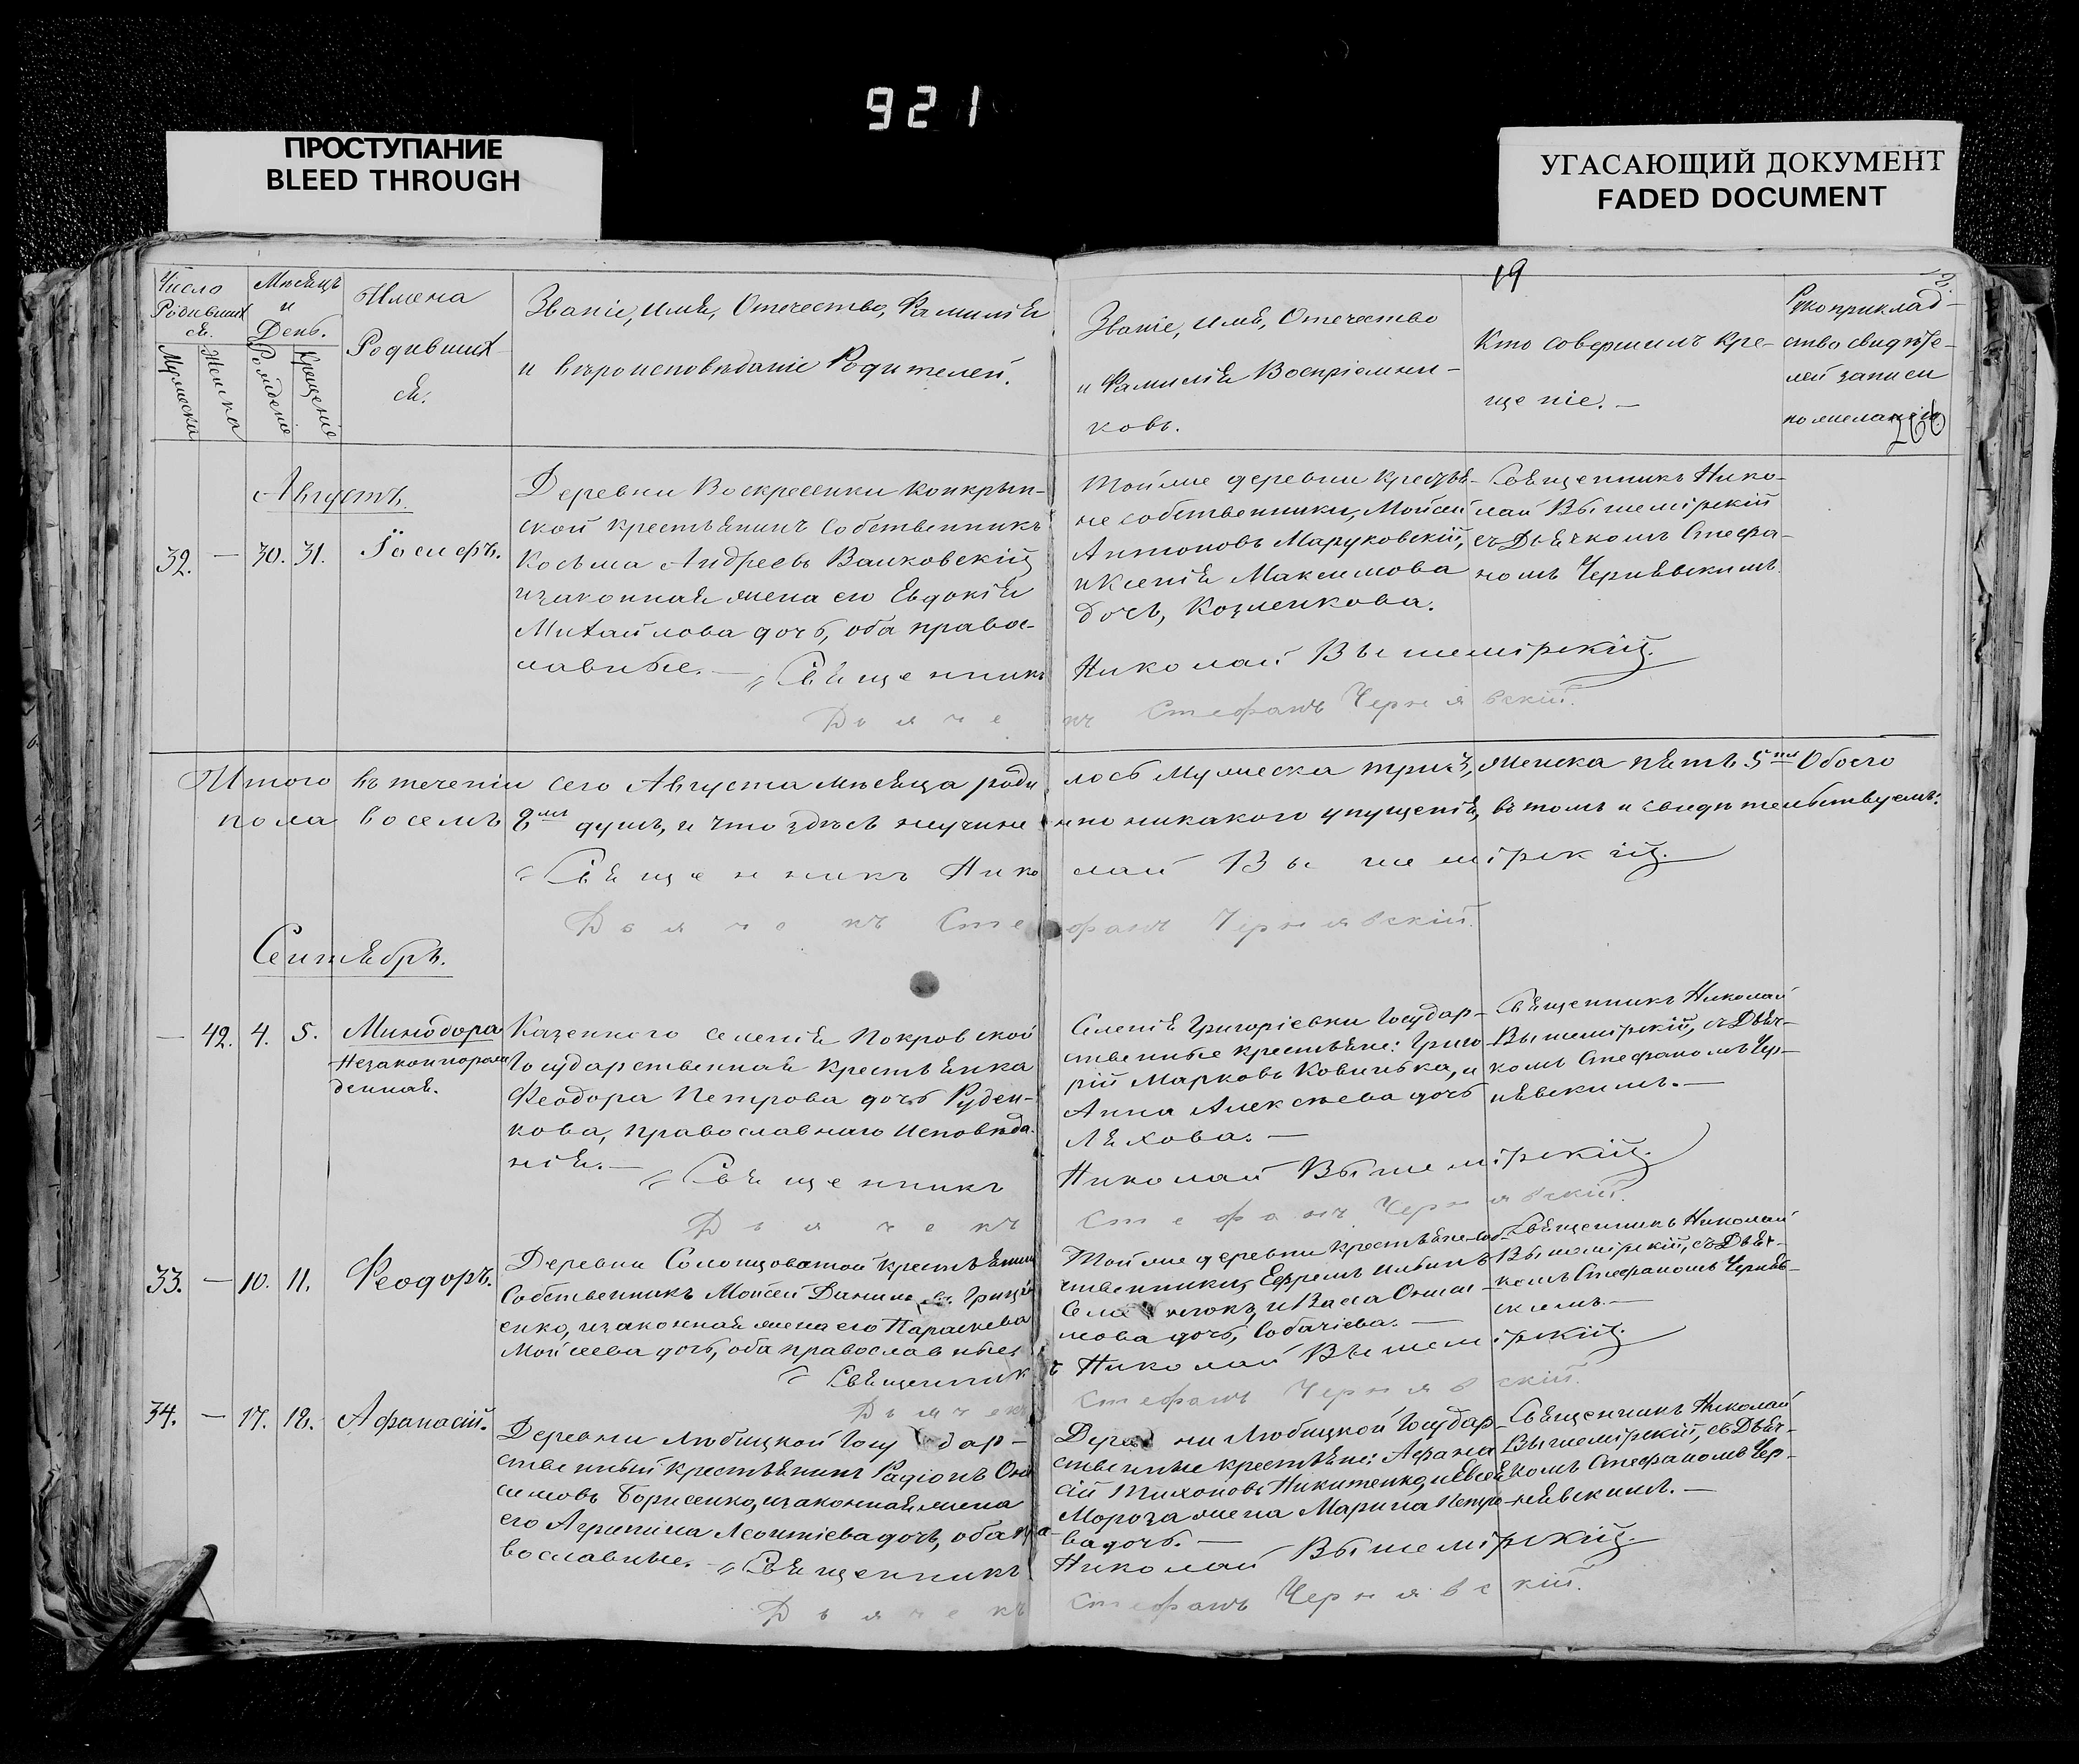 921
ПРОСТУПАНИЕ
BLEED THROUGH
УГАСАЮЩИЙ ДОКУМЕНТ
FADED DOCUMENT
19
266
Число
Родивших
ся.
Мужеска
Женска
Мѣсяцъ
и
День.
Рожденіе
Крещеніе
Имена
Родивших
ся.
Званіе, имя, Отечество, Фамилія
и вѣроисповѣданіе Родителей.
Званіе, имя, Отечество
и Фамилія Воспріемни-
ковъ.
Кто совершилъ кре-
щеніе.—
Рукоприклад-
ство свидѣте-
лей записи
по желанію
Августъ.
32. — 30. 31. Іосифъ.
Деревни Воскресенки Конкрын-
ской крестьянинъ собственникъ
Косьма Андреевъ Ванковскій
и законная жена его Евдокія
Михайлова дочь, оба правос-
лавные.— Священникъ
Дьяче
Той же деревни крестья-
не собственники, Мойсей
Антоновъ Маруковскій,
и Ксенія Максимова
дочь, Козленкова.
Николай Вышемірскій.
къ Стефанъ Чернявскій.
Священникъ Нико-
лай Вышемірскій
съ Дьячкомъ Стефа-
номъ Чернявскимъ.
Итого въ теченіи сего Августа мѣсяца роди лось Мужеска три 3, женска пять 5 ть Обоего
пола восемь 8 мь душъ, и что здѣсь неучине но никакого упущенія, въ томъ и свидѣтельствуемъ:
Священникъ Нико лай Вышемірскій.
Дьячекъ Сте фанъ Чернявскій.
Сентябрь.
— 42. 4. 5. Минодора
Незаконнорож
денная.
Казенного селенія Покровской
Государственная крестьянка
Феодора Петрова дочь Руден-
кова, православнаго исповѣда
нія.— Священникъ
Дьячекъ
Селенія Григоріевки Государ-
ственные крестьяне: Григо
рій Марковъ Ковинька, и
Анна Алексѣева дочь
Ляхова.—
Николай Вышемірскій.
Стефанъ Чернявскій.
Священникъ Николай
Вышемірскій, съ Дьяч-
комъ Стефаномъ Чер-
нявскимъ.—
33. — 10. 11. Феодоръ.
Деревни Солонцоватой крестьянинъ
Собственникъ Мойсей Данил въ Грици
енко, и законная жена его Параскева
Мойсеева дочь, оба православные
Священник
Дьячекъ
Той же деревни крестьяне соб-
ственники, Ефремъ
и Васса
мова дочь, Собачіева.—
ъ Николай Вышемірскій.
Стефанъ Чернявскій.
Священникъ Николай
Вышемірскій, съ Дьяч-
комъ Стефаномъ Черняв-
скимъ.—
34. — 17. 18. Афанасій.
Деревни Любицкой Госу дар-
ственный крестьянинъ Радіонъ Они
симовъ Борисенко, и законная жена
его Агрипина Леонтіева дочь, оба пра-
вославные.— Священникъ
Дьячекъ
Дерев ни Любицкой Государ-
ственные крестьяне: Афана
сій Тихоновъ Никитенко, и Евсея
Мороза жена Марина Петро
ва дочь.—
Николай Вышемірскій.
Стефанъ Чернявскій.
Священникъ Николай
Вышемірскій, съ Дьяч-
комъ Стефаномъ Чер-
нявскимъ.—